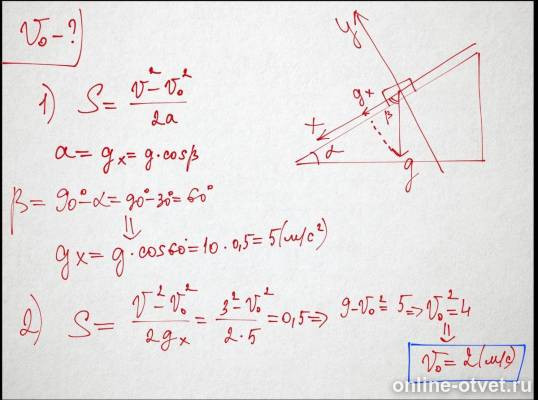 V₀ - ?
1) S = (V² - V₀²) / 2a
a = gx = g · cosβ
β = 90° - α = 90° - 30° = 60°
⇓
gx = g · cos60° = 10 · 0,5 = 5 (м/с²)
2) S = (V² - V₀²) / 2gx = (3² - V₀²) / 2·5 = 0,5 ⇒ 9 - V₀² = 5 ⇒ V₀² = 4
⇓
V₀ = 2 (м/с)
y
gx
β
x
α
g
online-otvet.ru